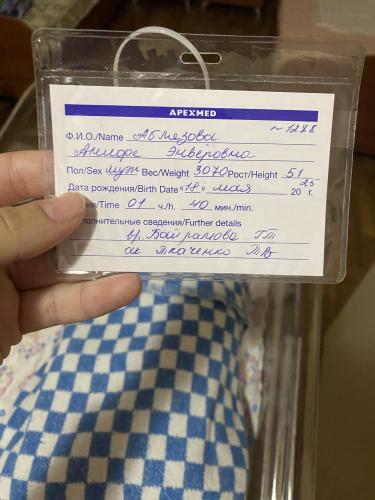 APEXMED
№ 1288
Ф.И.О./Name Аблязова
Энверовна
Пол/Sex муж Вес/Weight 3070 Рост/Height 51
Дата рождения/Birth Date «18» мая 2025 г.
мя/Time 01 ч./h. 40 мин./min.
полнительные сведения/Further details
вр. Байрамова Г.Т
ак Ткаченко ТВ